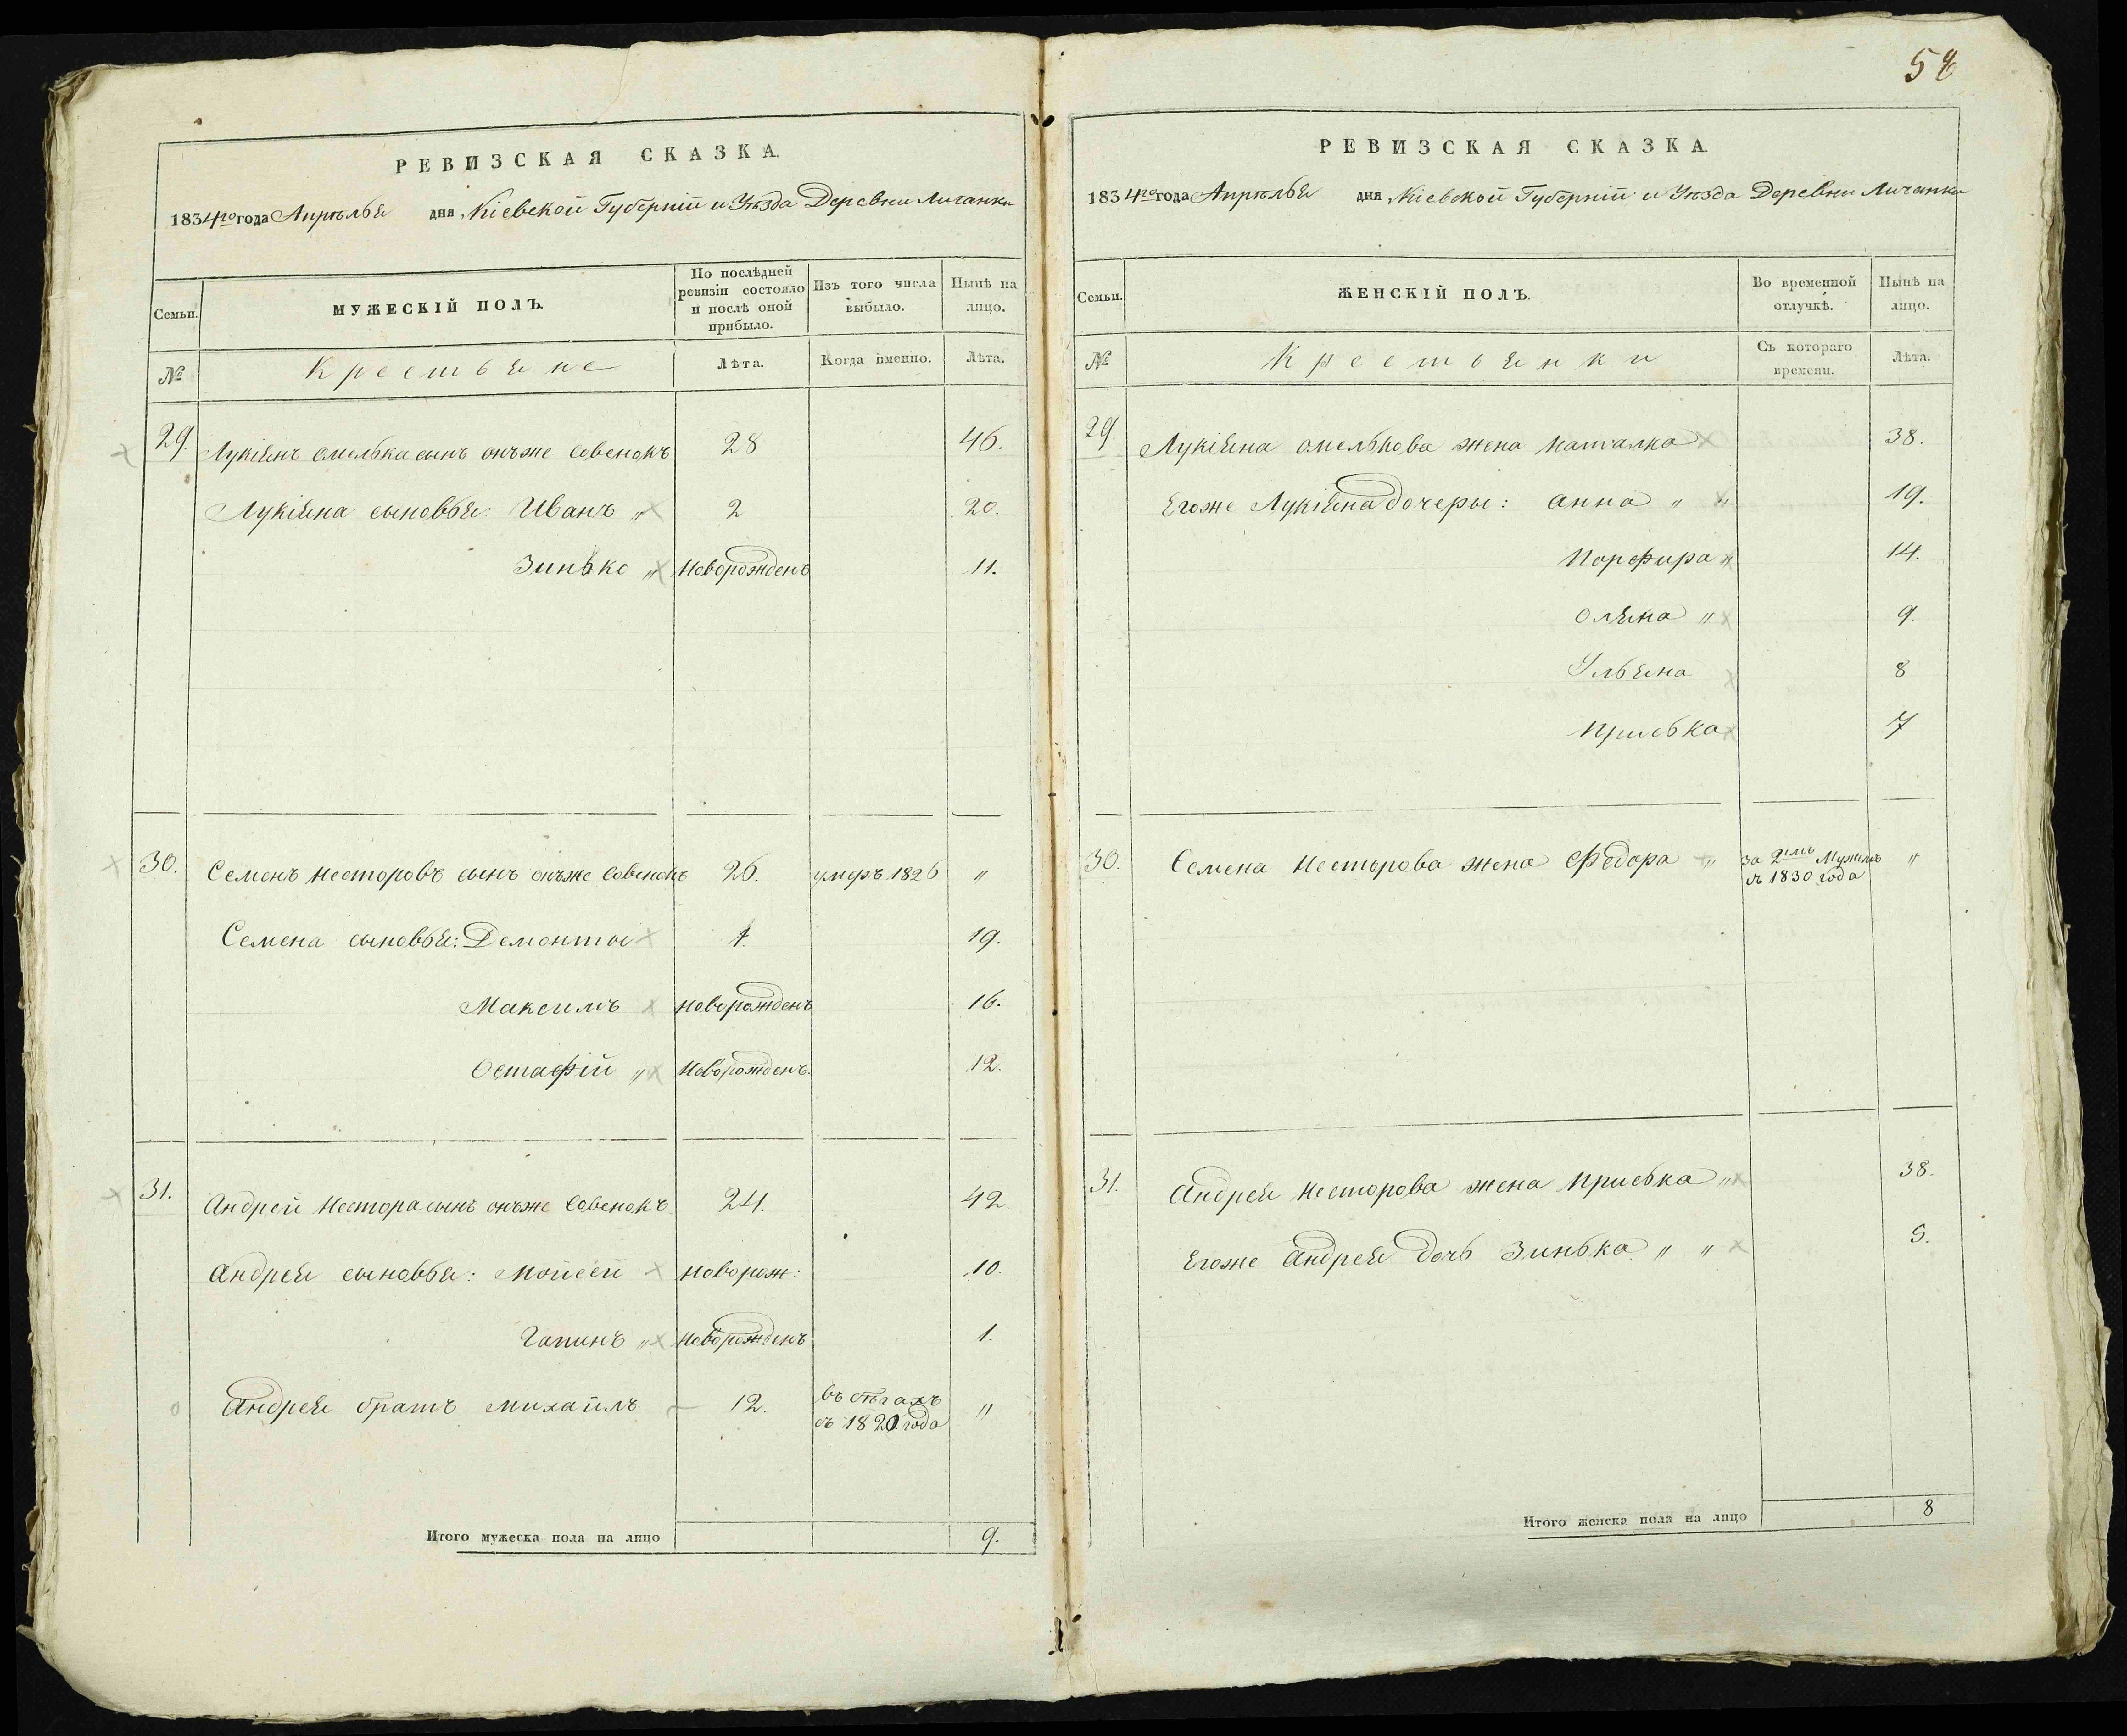 58
РЕВИЗСКАЯ СКАЗКА.
1834го года Апрѣлья дня, Кіевской Губерніи и Уѣзда Деревни Личанки
Семьи.
МУЖЕСКІЙ ПОЛЪ.
По послѣдней ревизіи состояло и послѣ оной прибыло.
Изъ того числа выбыло.
Нынѣ на лицо.
№
Крестьяне
Лѣта.
Когда именно.
Лѣта.
29. Лукіянъ Омелька сынъ онъже Совенокъ 28 46.
Лукіяна сыновья: Иванъ " 2 20.
Зинько " Новорожденъ 11.
30. Семенъ Несторовъ сынъ онъже Совенокъ 26. умеръ 1826 "
Семена сыновья: Демонты 1. 19.
Максимъ новорожденъ 16.
Остафій " Новорожденъ. 12.
31. Андрей Нестора сынъ онъже Совенокъ 24. 42.
Андрея сыновья: Мойсей новорож: 10.
Гапинъ " новорожденъ 1.
Андрея братъ Михайлъ 12. въ бѣгахъ съ 1820 года "
Итого мужеска пола на лицо 9.
РЕВИЗСКАЯ СКАЗКА.
1834го года Апрѣлья дня, Кіевской Губерніи и Уѣзда Деревни Личанки
Семьи.
ЖЕНСКІЙ ПОЛЪ.
Во временной отлучкѣ.
Нынѣ на лицо.
№
Крестьянки
Съ котораго времени.
Лѣта.
29 Лукіяна Омелькова жена Наталка 38.
Егоже Лукіяна дочеры: Анна " " 19.
Порфира " 14.
Оляна " 9.
Ульяна 8
Приська 7
30. Семена Нестырова жена Федора " за 2имъ Мужемъ съ 1830 года "
31. Андрея Несторова жена Приська " 38.
Егоже Андрея дочь Зинька " " 5.
Итого женска пола на лицо 8